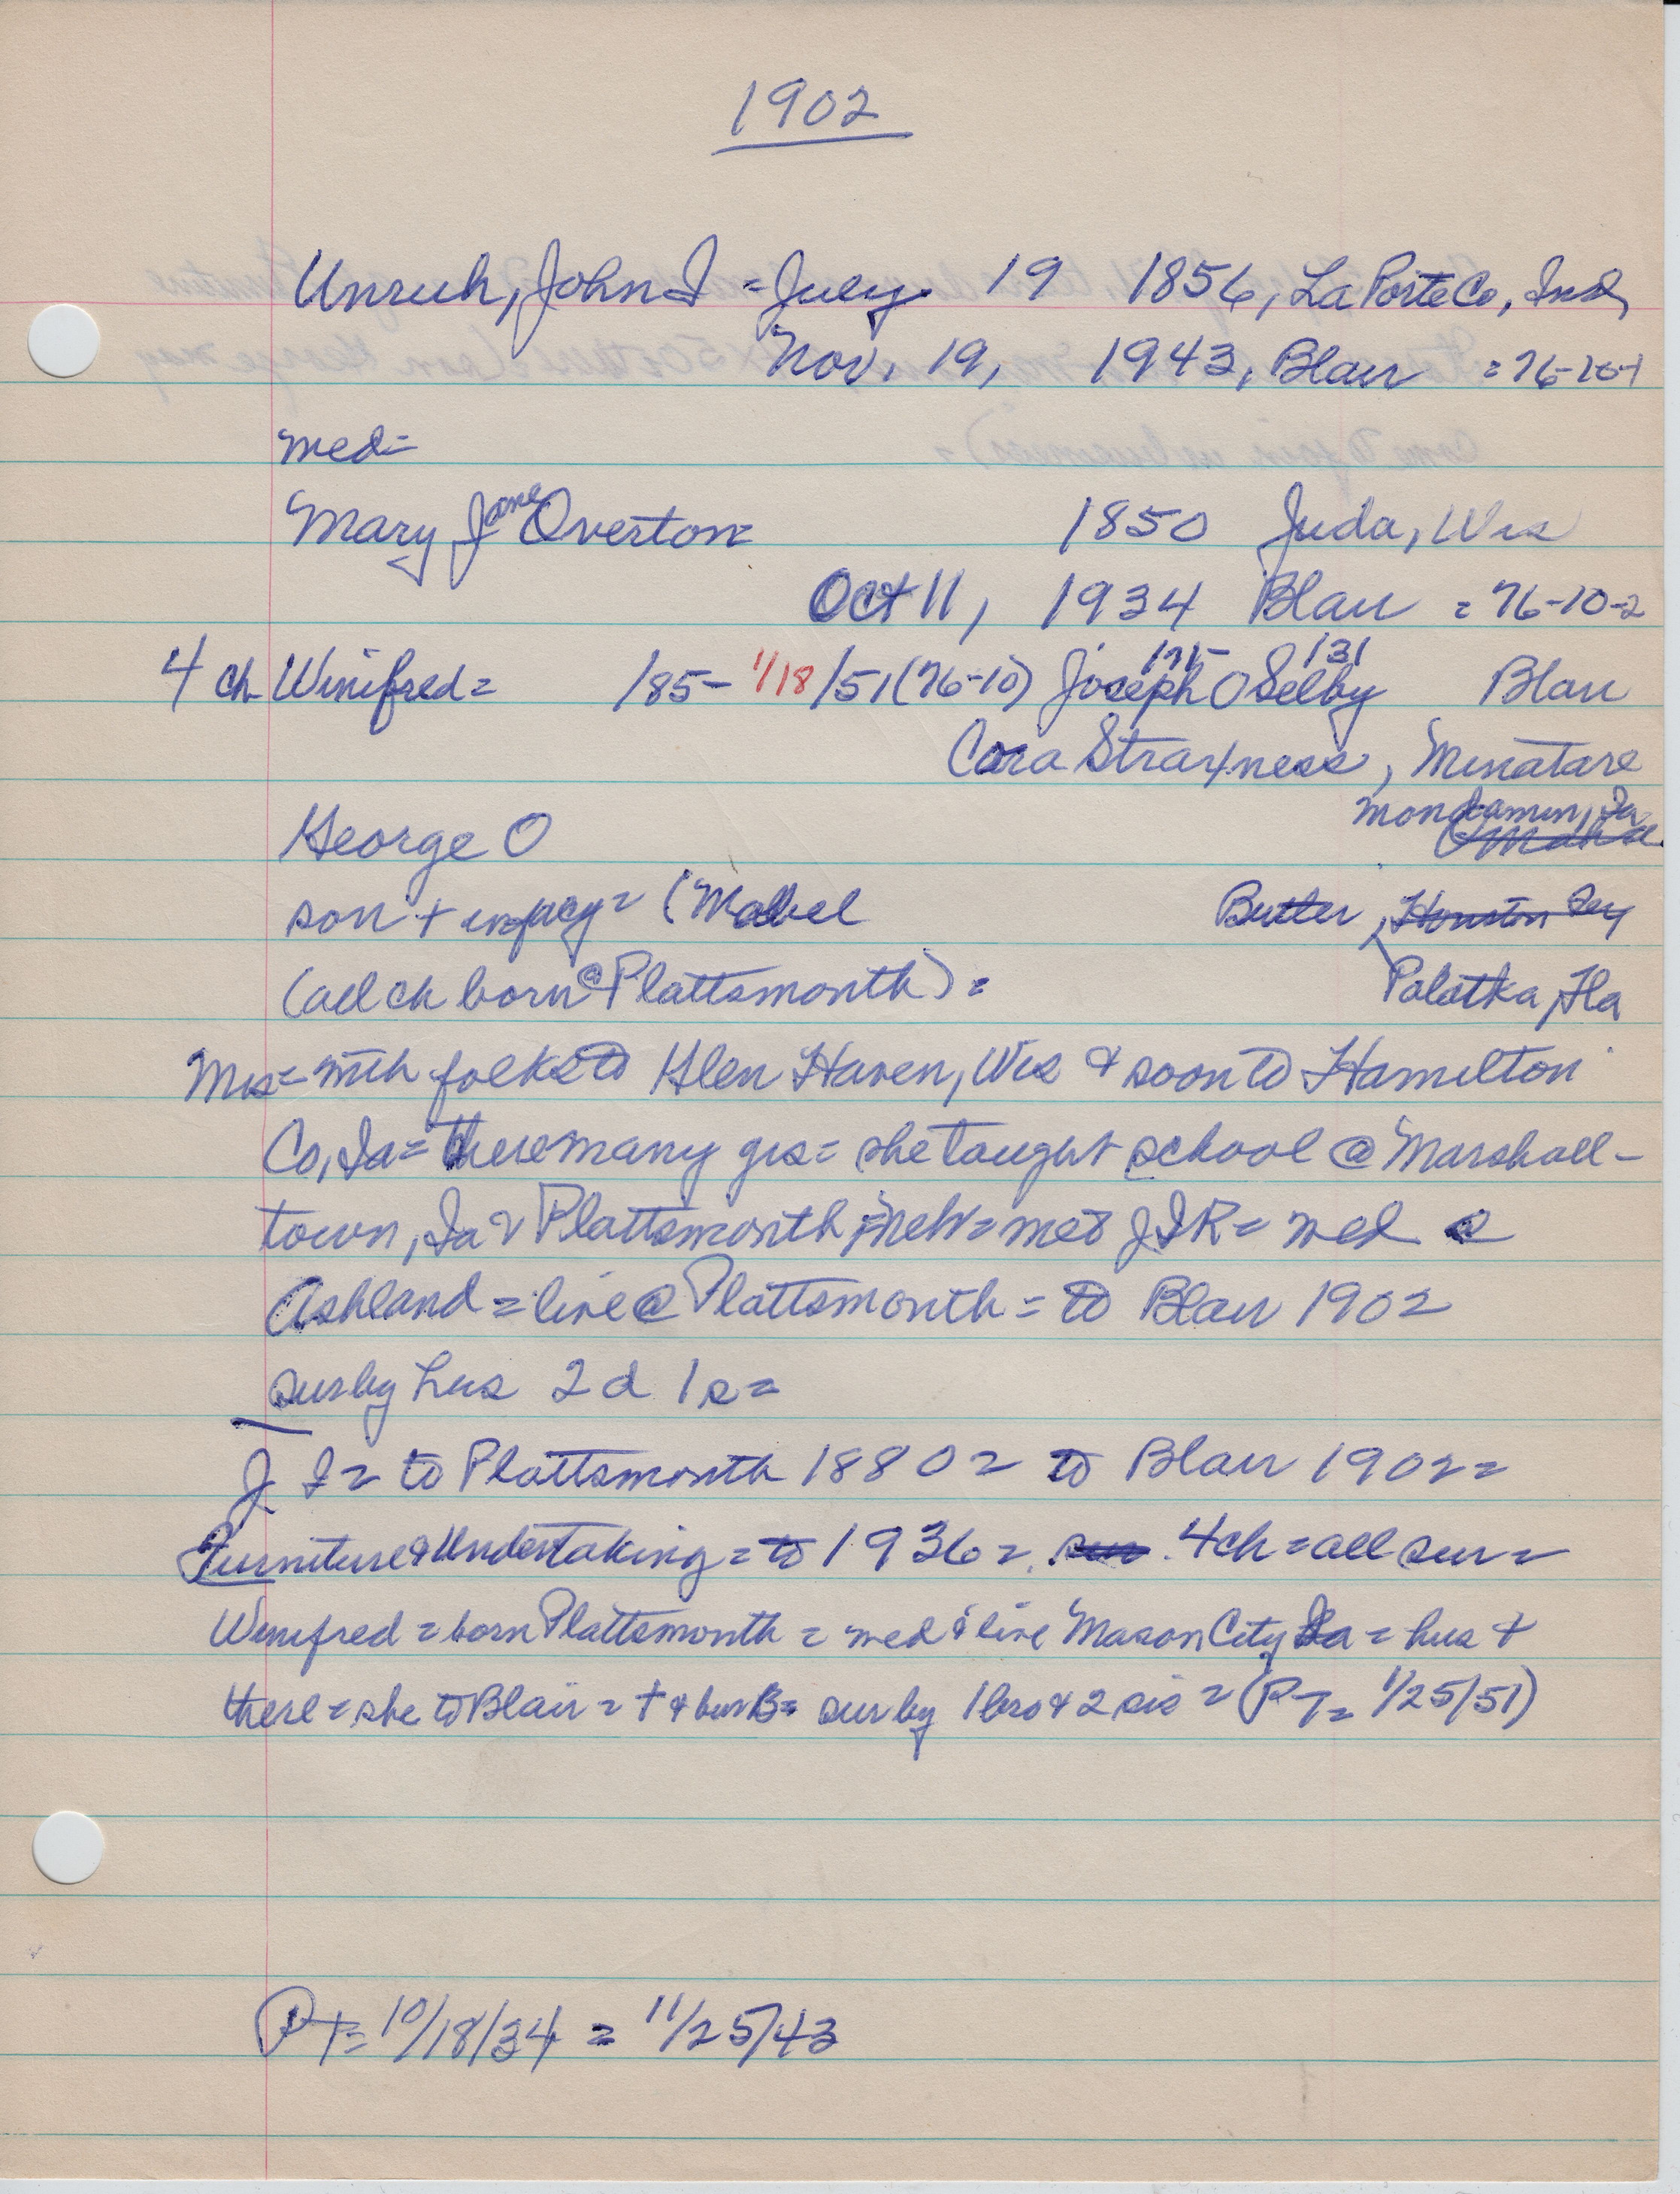 1902
Unruh, John I = July 19 1856, La Porte Co, Ind,
Nov. 19, 1943, Blair = 76-10-1
med=
Mary Jane Overton=
1850 Juda, Wis
Oct 11, 1934 Blair = 76-10-2
4 ch Winifred = /85- 1/18/51 (76-10) Joseph O Selby Blair
131
Cora Straxness, Minatare
Mondamin, Ia
Omaha
George O
son + infacy = (Mabel Butter, Houston Tex
(all ch born @ Plattsmonth) = Palatka, Fla
Mrs = with folks to Glen Haven, Wis & soon to Hamilton
Co, Ia = there many yrs = she taught school @ Marshall-
town, Ia & Plattsmonth, Neb = met J I R = med @
Ashland = live @ Plattsmonth = to Blair 1902
sur by hus 2 d 1 s =
J I = to Plattsmonth 1880 = to Blair 1902 =
Furniture & Undertaking = to 1936 = sur 4 ch = all sur =
Winifred = born Plattsmonth = med & live Mason City Ia = hus +
there = she to Blair = + & bur B = sur by 1 bro & 2 sis = (PT = 1/25/51)
PT = 10/18/34 = 11/25/43